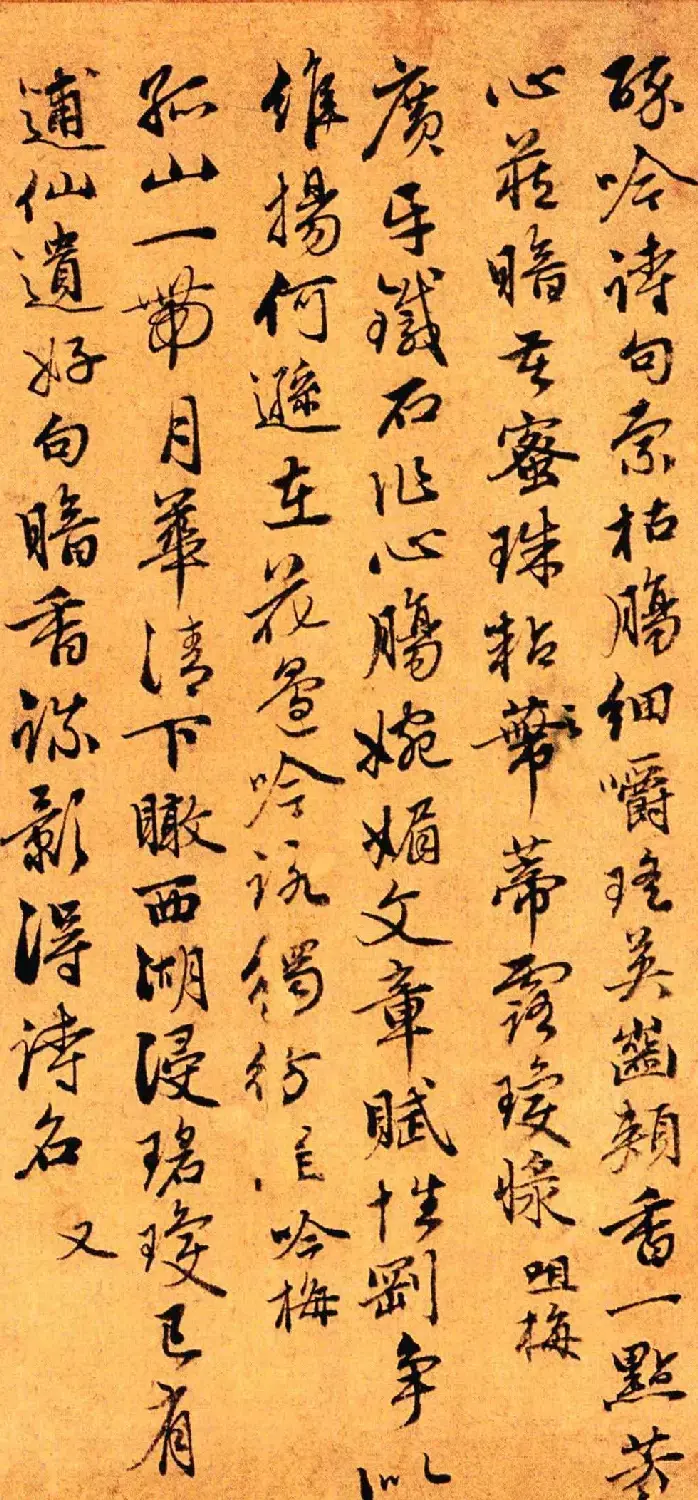 醉吟詩句索枯腸細嚼瑤英齒頰香一點芳
心藏暗苦蜜珠粘蒂露瓊漿 咀梅
廣平鐵石作心腸婉媚文章賦性剛爭似
維揚何遜在花邊吟詠獨彷徨 吟梅
孤山一帶月華清下瞰西湖浸碧瓊已有
逋仙遺好句暗香疎影得詩名 又